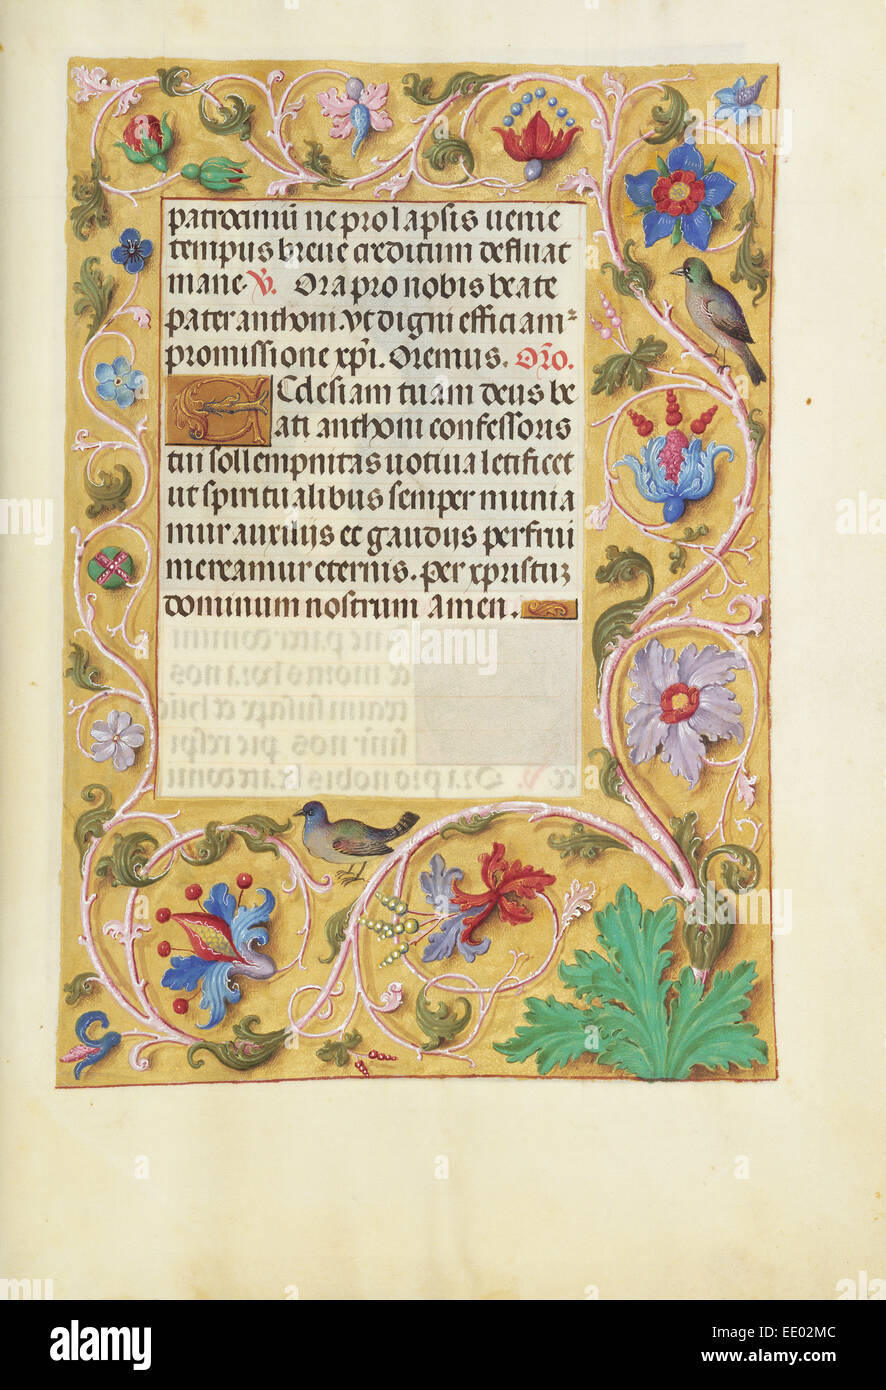 patrociniū ne prolapsis uenie
tempus breue creditum defluat
mane. V. Ora pro nobis beate
pater anthoni. Vt digni efficiam
promissione xpi. Oremus. Oro.
Ecclesiam tuam deus be
ati anthoni confessoris
tui sollempnitas uotiua letificet
ut spiritualibus semper munia
mur auxilijs et gaudijs perfrui
mereamur eternis. Per xpristuz
dominum nostrum Amen.
a
alamy
alamy stock photo
EE02MC
www.alamy.com